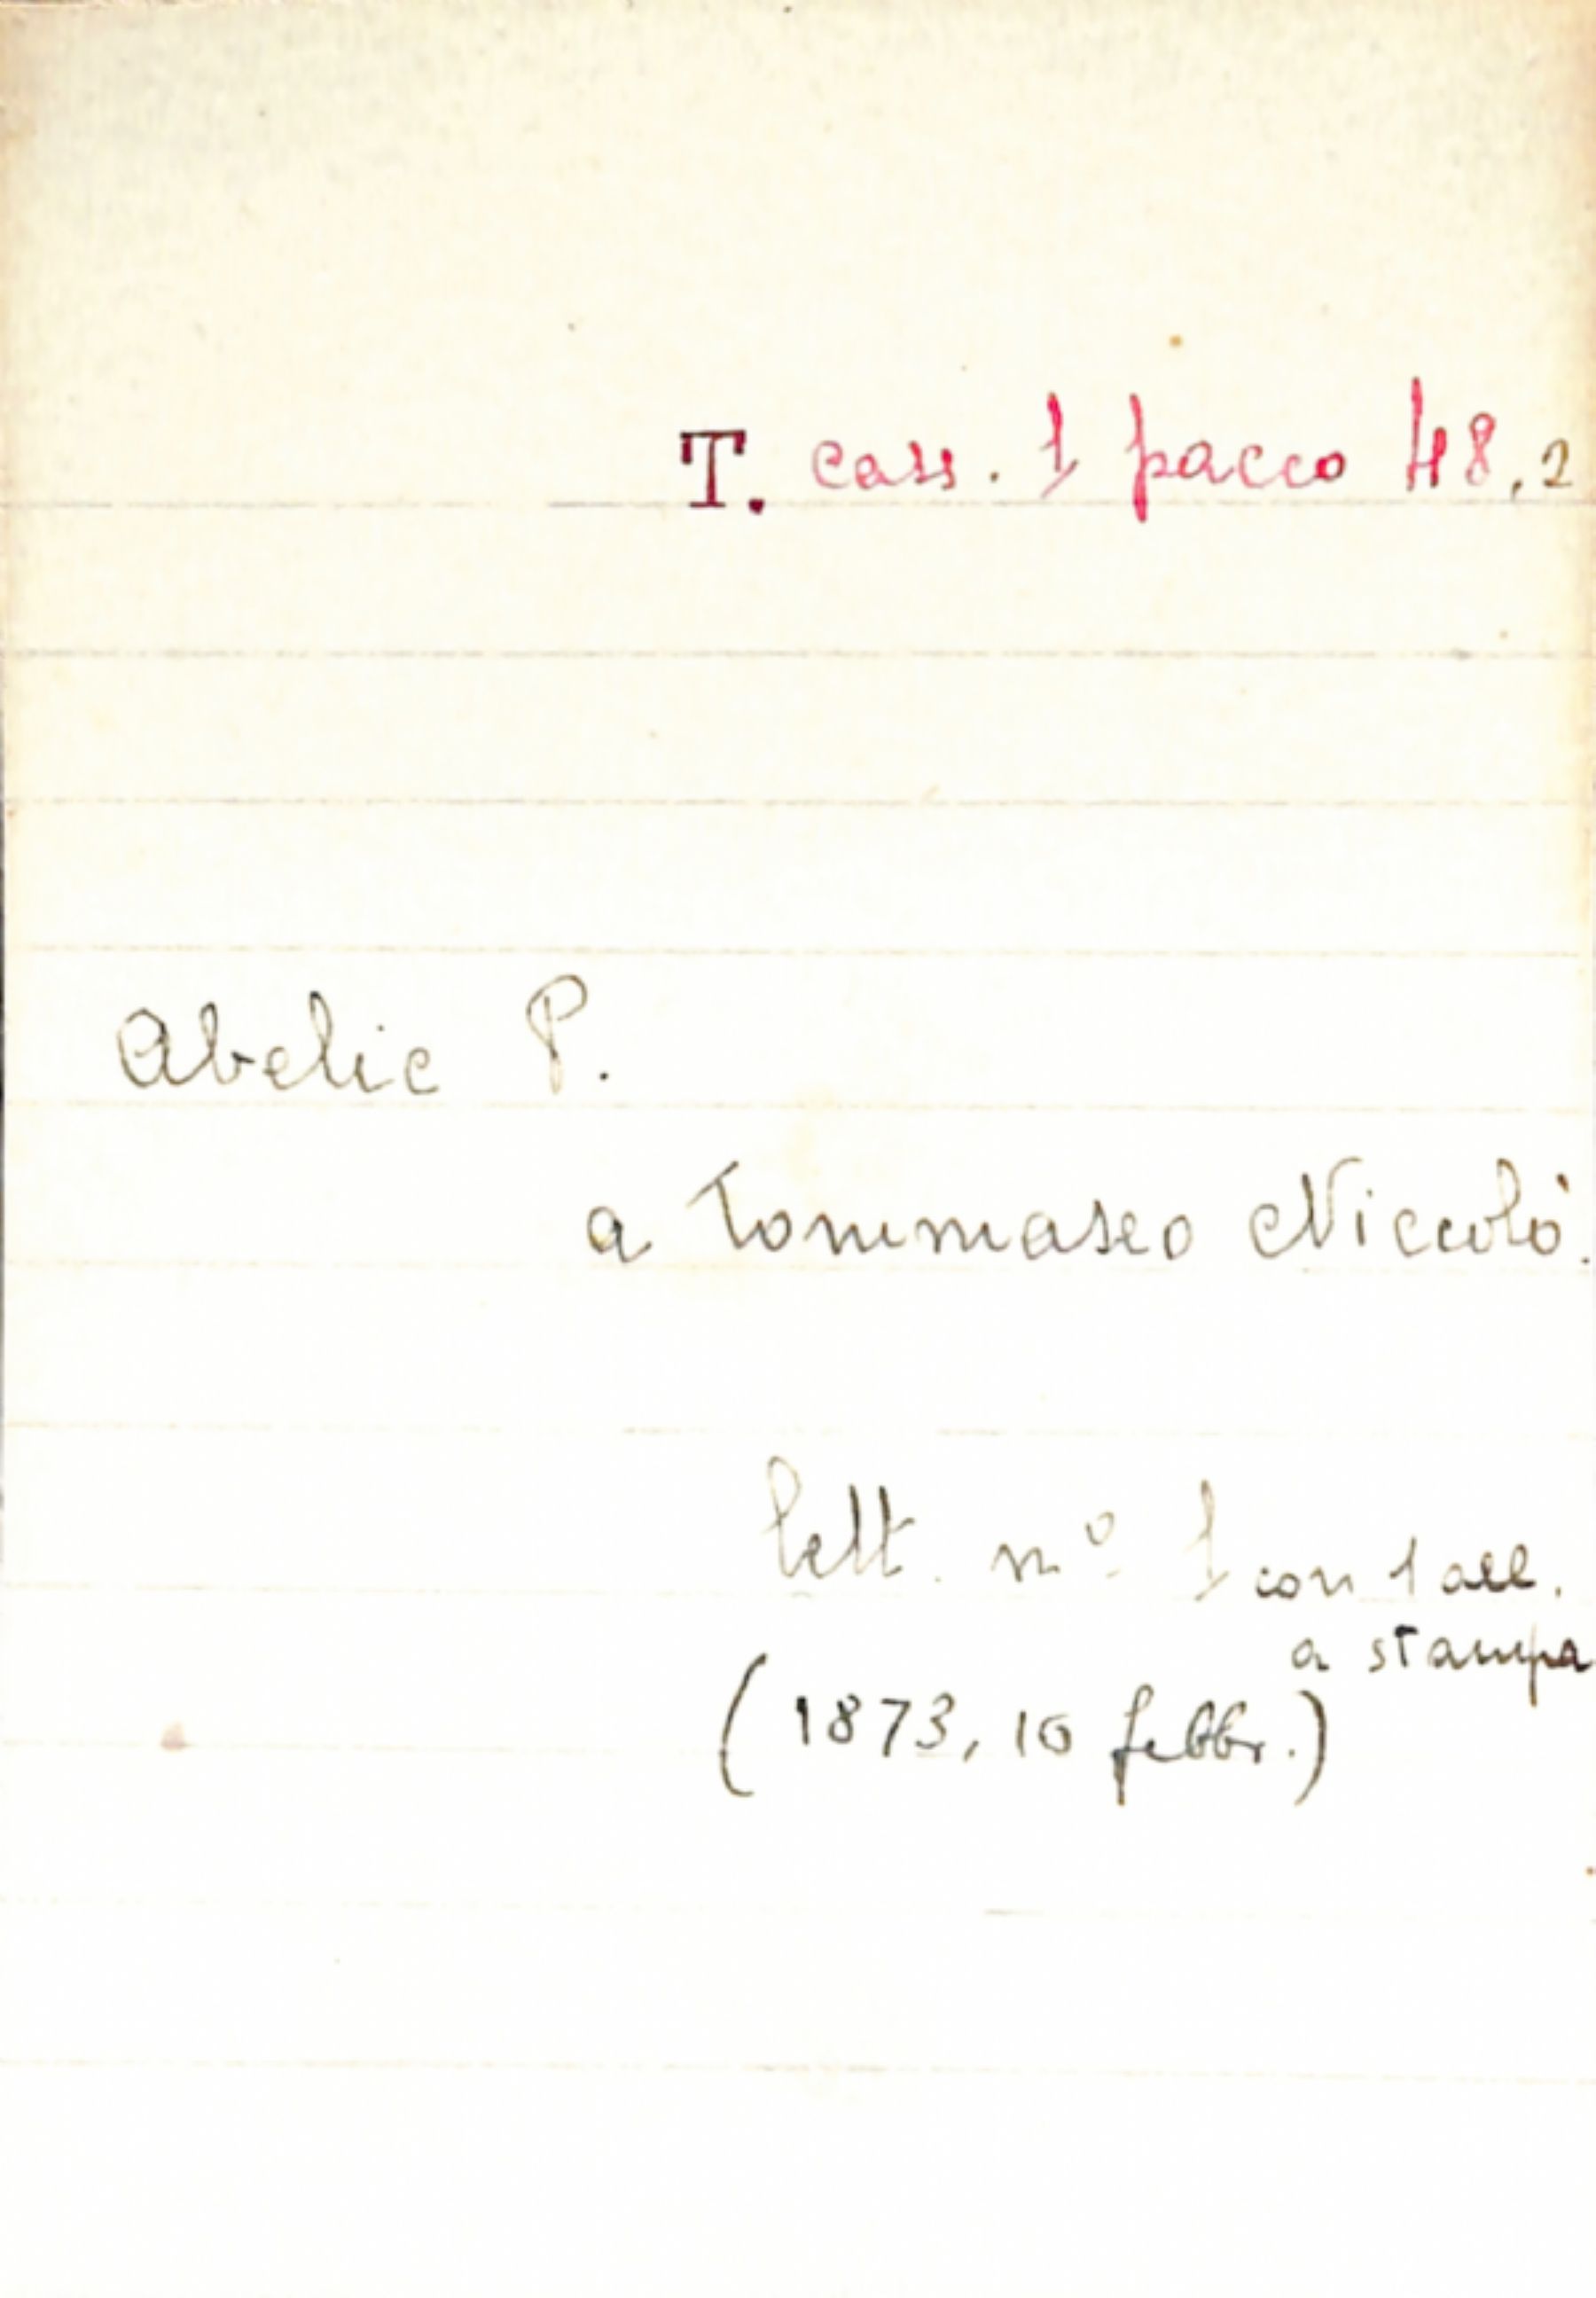 T. cass. 1 pacco 48,2
Abelic P.
a Tommaseo Niccolò.
lett. nº 1 con 1 all.
a stampa
(1873, 10 febbr.)